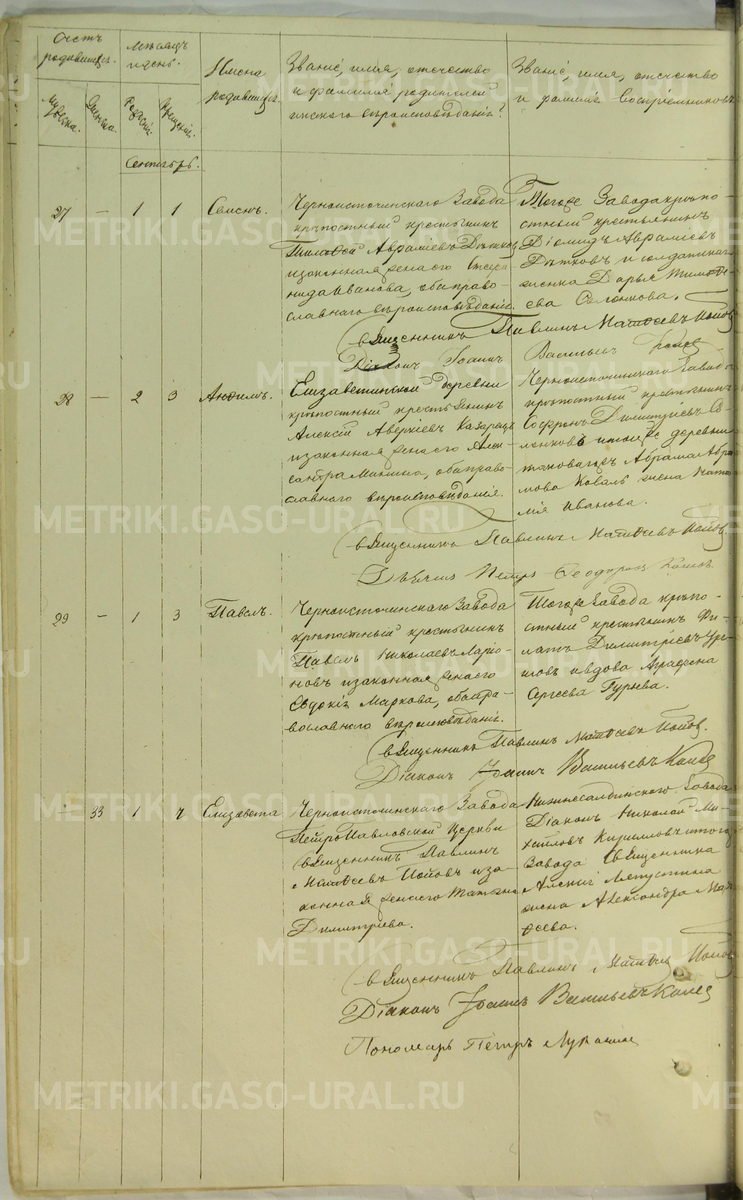 Счетъ родившихся.
Мѣсяцъ и день.
Имена родившихся.
Званіе, имя, отчество и фамилія родителей и какого вѣроисповѣданія?
Званіе, имя, отчество и фамилія Воспріемниковъ
Мужеска. Женска. Рожденія Крещенія.
Сентябрь.
27 — 1 1 Семенъ.
Черноисточинскаго Завода
крѣпостный крестьянинъ
Авраміевъ
и законная жена его
Иванова, оба право-
славнаго вѣроисповѣданія.
Тогоже Завода крѣпо-
стный крестьянинъ
Діомидъ Авраміевъ
и солдатская
женка Дарья Тимоѳе-
ева
Священникъ Павлинъ Матѳеевъ Іоновъ
Діаконъ Іоаннъ Васильевъ
28 — 2 3 Анѳимъ.
Елизаветинской деревни
крѣпостный крестьянинъ
Алексій Аверкіевъ
и законная жена его Алек-
сандра оба право-
славнаго вѣроисповѣданія.
Черноисточинскаго Завода
крѣпостный крестьянинъ
Софронъ Димитріевъ
и той же деревни
Абрама Абра-
мова Коваль жена Ната-
лія Иванова.
Священникъ Павлинъ Матѳеевъ Іоновъ
Петръ Ѳеодоровъ
29 — 1 3 Павелъ.
Черноисточинскаго Завода
крѣпостный крестьянинъ
Павелъ Николаевъ Ларіо-
новъ и законная жена его
Евдокія Маркова, оба пра-
вославнаго вѣроисповѣданія.
Тогоже Завода крѣпо-
стный крестьянинъ Фи-
латъ Димитріевъ
и вдова Аграфена
Сергеева Гурьева.
Священникъ Павлинъ Матѳеевъ Іоновъ.
Діаконъ Іоаннъ Васильевъ
— 33 1 7 Елизавета
Черноисточинскаго Завода
Петро Павловской Церкви
Священникъ Павлинъ
Матѳеевъ Іоновъ и за-
конная жена его Татьяна
Димитріева.
Нижнесалдинскаго Завода
Діаконъ Николай Ми-
хайловъ Кирилловъ и того
Завода Священника
Алексія Лепустина
жена Александра Мат-
ѳеева.
Священникъ Павлинъ Матѳеевъ Іоновъ
Діаконъ Іоаннъ Васильевъ
Пономарь Петръ
METRIKI.GASO-URAL.RU